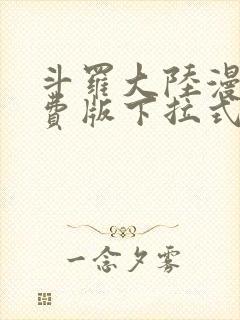 斗羅大陸漫
費版下拉式
一念夕霧